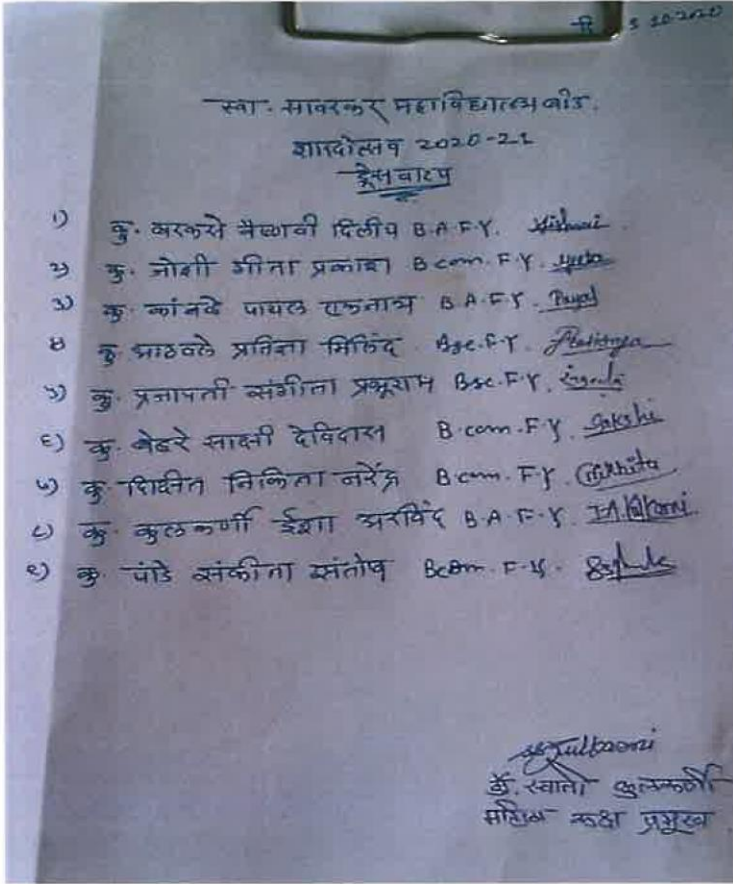 दि 3 10-2020
स्वा. सावरकर महाविद्यालय बीड.
शारदोत्सव 2020-21
ड्रेस वाटप
१) कु. वैष्णवी दिलीप B.A.F.Y.
२) कु. जोशी गीता प्रकाश B com. F.Y. Geeta
३) कु. कांनवे पायल एकनाथ B.A.F.Y. Payal
४ कु. आठवले प्रतिज्ञा मिलिंद. Bsc.F.Y. Pratidnya
५) कु. प्रजापती संगीता प्रभूराम Bsc. F.Y. Sangeeta
६) कु. बेडरे साक्षी देविदास B.com. F.Y. Sakshi
७) कु. निकिता नरेंद्र B com. F.Y. Nikhita
८) कु. कुलकर्णी ईशा अरविंद B.A.F.Y. I.A.Kulkarni.
९) कु. पांडे संकीता संतोष Bcom. F.Y.
Kulkarni
डॉ. स्वाती कुलकर्णी
महिला कक्ष प्रमुख